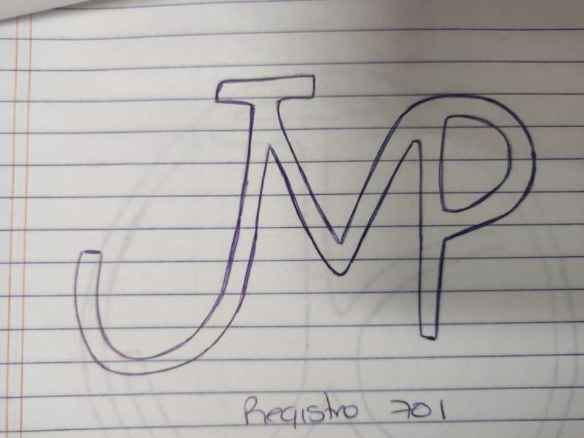 JMP
Registro 701